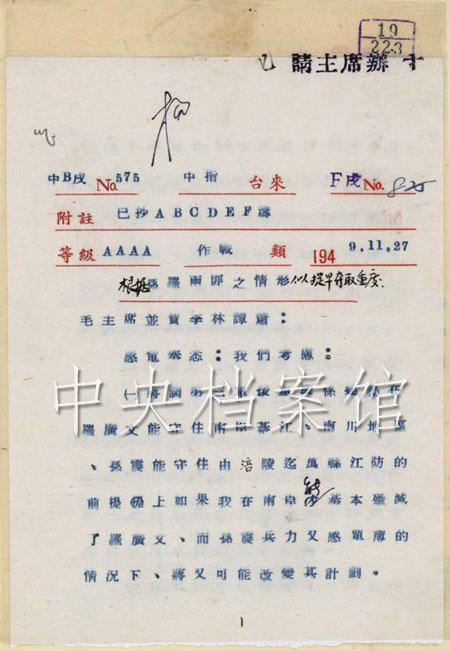 19
223
請主席辦
中B戌 No. 575 中指 台來 F戌 No.
附註 已抄ABCDEF
等級 AAAA 作戰 類 1949.11.27
根据孫羅兩部之情形似以提早夺取重庆
毛主席並賀李林譚蕭：
感電奉悉：我們考慮：
(一)蔣
中央档案馆
羅廣文能守住南岸綦江、南川地區
、孫震能守住由涪陵迄萬縣江防的
前提上如果我在南岸能基本殲滅
了羅廣文、而孫震兵力又感單薄的
情況下、蔣又可能改變其計劃。
1